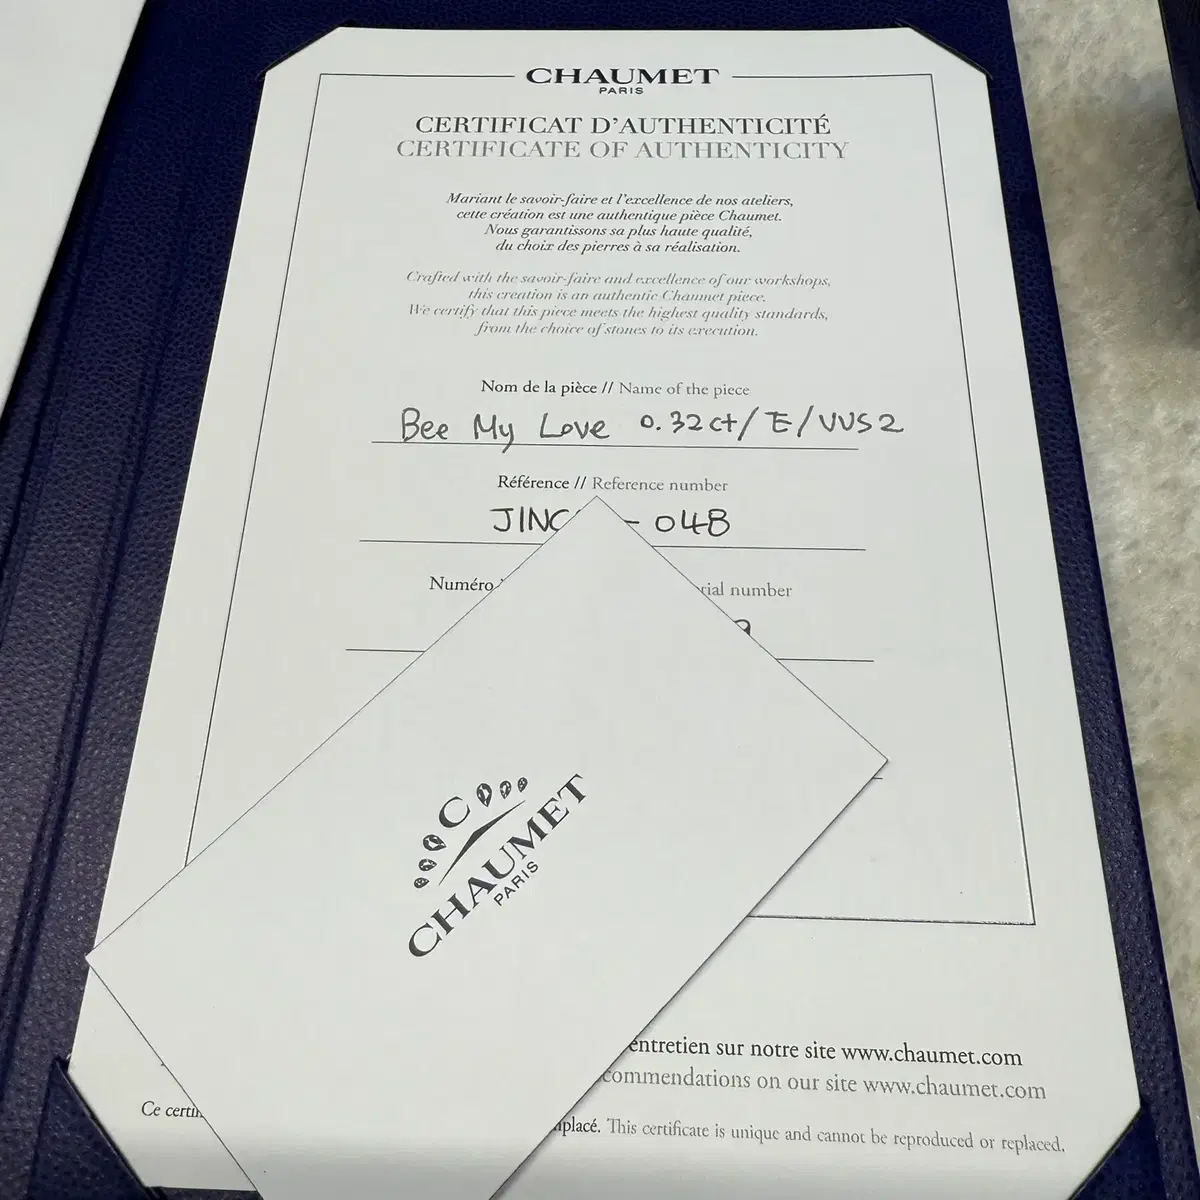 CHAUMET
PARIS
CERTIFICAT D'AUTHENTICITÉ
CERTIFICATE OF AUTHENTICITY
Mariant le savoir-faire et l'excellence de nos ateliers,
cette création est une authentique pièce Chaumet.
Nous garantissons sa plus haute qualité,
du choix des pierres à sa réalisation.
Crafted with the savoir-faire and excellence of our workshops,
this creation is an authentic Chaumet piece.
We certify that this piece meets the highest quality standards,
from the choice of stones to its execution.
Nom de la pièce // Name of the piece
Bee My Love 0.32ct/E/VVS2
Référence // Reference number
JINC - 048
Numéro rial number
C
CHAUMET
PARIS
entretien sur notre site www.chaumet.com
commendations on our site www.chaumet.com
Ce certi placé. This certificate is unique and cannot be reproduced or replaced.